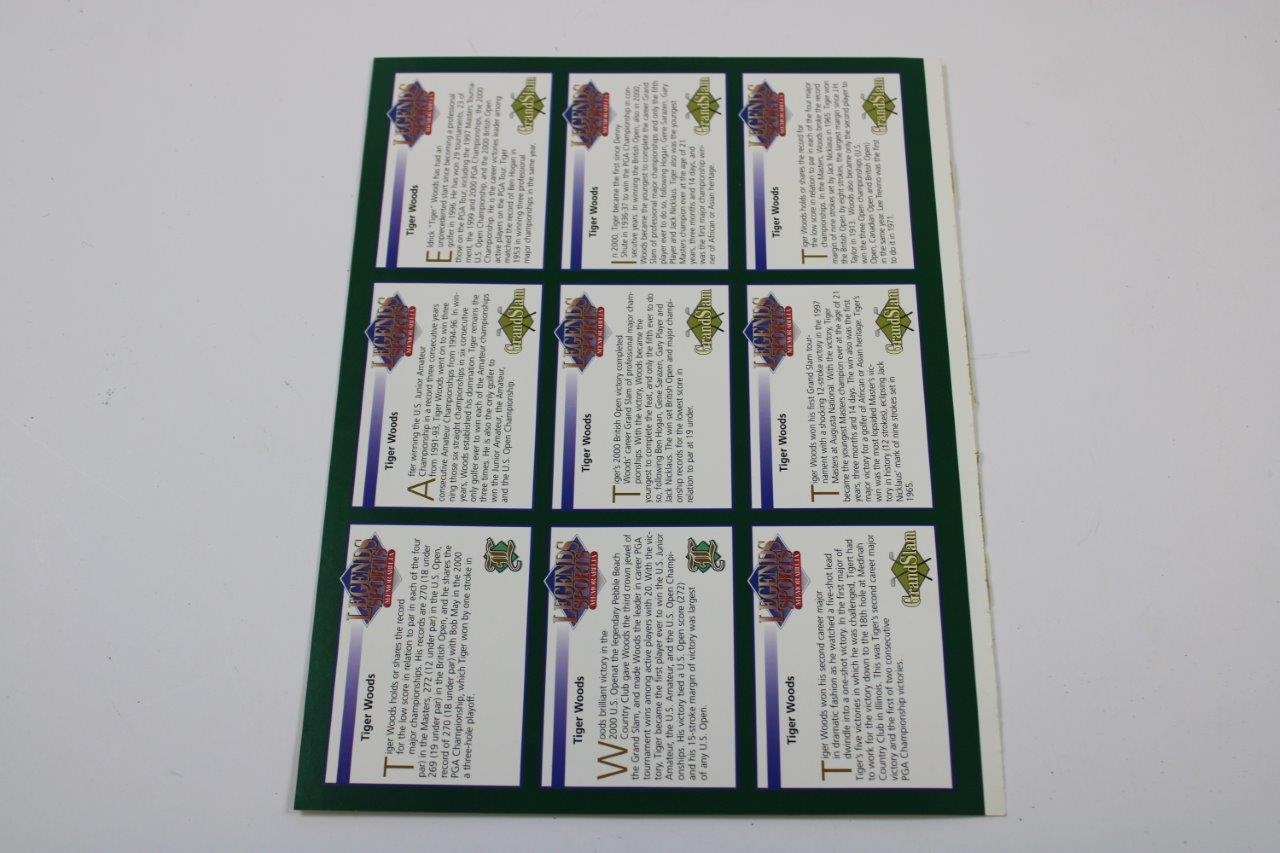 Tiger Woods
LEGENDS
SPORTS
MEMORABILIA
Tiger Woods holds or shares the record
for the low score in relation to par in each of the four
major championships. His records are 270 (18 under
par) in the Masters, 272 (12 under par) in the U.S. Open,
269 (19 under par) in the British Open, and he shares the
record of 270 (18 under par) with Bob May in the 2000
PGA Championship, which Tiger won by one stroke in
a three-hole playoff.
L
Tiger Woods
LEGENDS
SPORTS
MEMORABILIA
After winning the U.S. Junior Amateur
Championship in a record three consecutive years
from 1991-93, Tiger Woods went on to win three
consecutive Amateur Championships from 1994-96. In win-
ning those six straight championships in six consecutive
years, Woods established his domination. Tiger remains the
only golfer ever to win each of the Amateur championships
three times. He is also the only golfer to
win the Junior Amateur, the Amateur,
and the U.S. Open Championship.
GrandSlam
Tiger Woods
LEGENDS
SPORTS
MEMORABILIA
Eldrick "Tiger" Woods has had an
unprecedented start since becoming a professional
golfer in 1996. He has won 29 tournaments, 23 of
those on the PGA Tour, including the 1997 Masters Tourna-
ment, the 1999 and 2000 PGA Championships, the 2000
U.S. Open Championship, and the 2000 British Open
Championship. He is the career victories leader among
active players on the PGA Tour. Tiger
matched the record of Ben Hogan in
1953 in winning three professional
major championships in the same year.
GrandSlam
Tiger Woods
LEGENDS
SPORTS
MEMORABILIA
Woods brilliant victory in the
2000 U.S. Openat the legendary Pebble Beach
Country Club gave Woods the third crown jewel of
the Grand Slam, and made Woods the leader in career PGA
tournament wins among active players with 20. With the vic-
tory, Tiger became the first player ever to win the U.S. Junior
Amateur, the U.S. Amateur, and the U.S. Open Champi-
onships. His victory tied a U.S. Open score (272)
and his 15-stroke margin of victory was largest
of any U.S. Open.
L
Tiger Woods
LEGENDS
SPORTS
MEMORABILIA
Tiger's 2000 British Open victory completed
Woods' career Grand Slam of professional major cham-
pionships. With the victory, Woods became the
youngest to complete the feat, and only the fifth ever to do
so, following Ben Hogan, Gene Sarazen, Gary Player and
Jack Nicklaus. The win set British Open and major champi-
onship records for the lowest score in
relation to par at 19 under.
GrandSlam
Tiger Woods
LEGENDS
SPORTS
MEMORABILIA
In 2000, Tiger became the first since Denny
Shute in 1936-37 to win the PGA Championship in con-
secutive years. In winning the British Open, also in 2000,
Woods became the youngest to complete the career Grand
Slam of professional major championships and only the fifth
player ever to do so, following Hogan, Gene Sarazen, Gary
Player and Jack Nicklaus. Tiger also was the youngest
Masters champion ever at the age of 21
years, three months and 14 days, and
was the first major championship win-
ner of African or Asian heritage.
GrandSlam
Tiger Woods
LEGENDS
SPORTS
MEMORABILIA
Tiger Woods won his second career major
in dramatic fashion as he watched a five-shot lead
dwindle into a one-shot victory. In the first major of
Tiger's five victories in which he was challenged, Tigert had
to work for the victory down to the 18th hole at Medinah
Country Club in Illinois. This was Tiger's second career major
victory and the first of two consecutive
PGA Championship victories.
GrandSlam
Tiger Woods
LEGENDS
SPORTS
MEMORABILIA
Tiger Woods won his first Grand Slam tour-
nament with a shocking 12-stroke victory in the 1997
Masters at Augusta National. With the victory, Tiger
became the youngest Masters champion ever at the age of 21
years, three months and 14 days. The win also was the first
major victory for a golfer of African or Asian heritage. Tiger's
win was the most lopsided Master's vic-
tory in history (12 strokes), eclipsing Jack
Nicklaus' mark of nine strokes set in
1965.
GrandSlam
Tiger Woods
LEGENDS
SPORTS
MEMORABILIA
Tiger Woods holds or shares the record for
the low score in relation to par in each of the four major
championships. In the Masters, Woods broke the record
margin of nine strokes set by Jack Nicklaus in 1965. Tiger won
the British Open by eight strokes, the largest margin since J.H.
Taylor in 1913. Woods also became only the second player to
win the three Open championships (U.S.
Open, Canadian Open and British Open)
in the same year. Lee Trevino was the first
to do it in 1971.
GrandSlam